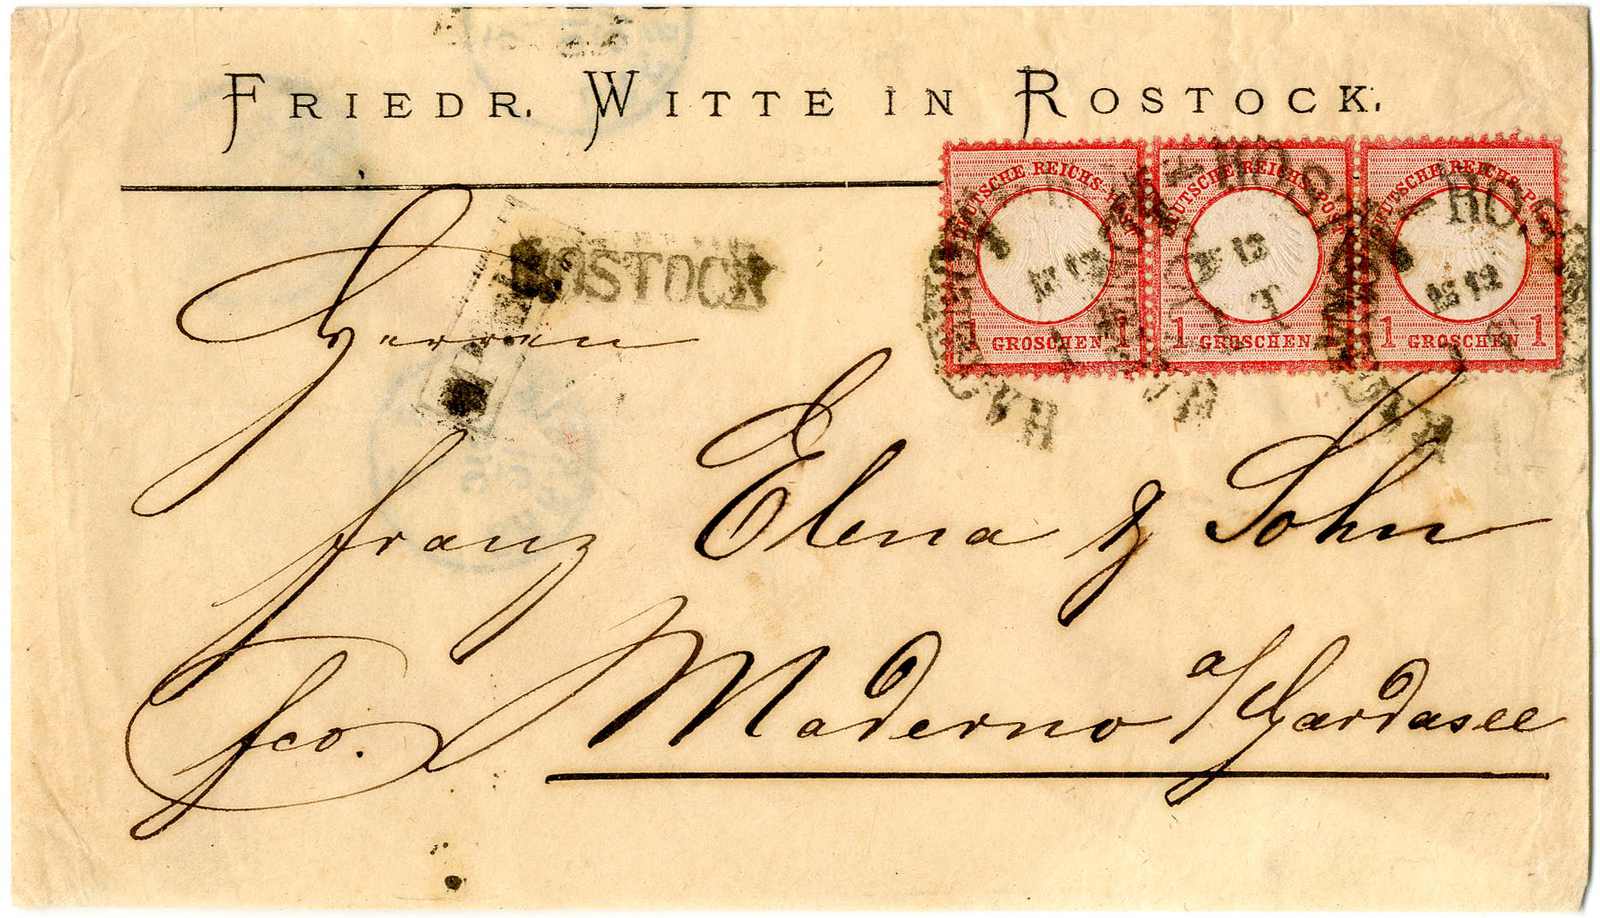 FRIEDR. WITTE IN ROSTOCK.
DEUTSCHE REICHS-POST DEUTSCHE REICHS-POST DEUTSCHE REICHS-POST
1 GROSCHEN 1 1 GROSCHEN 1 1 GROSCHEN 1
ROSTOCK
Herren
Franz Elena & Sohn
fco. Maderno a/Gardasee